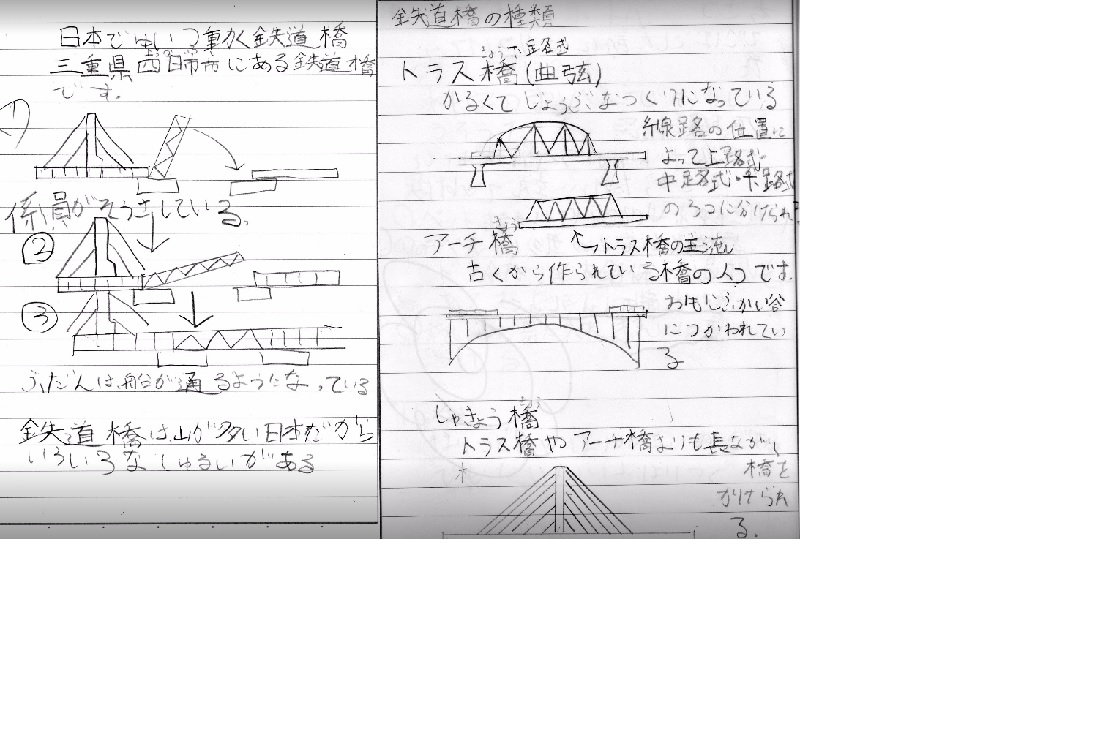 鉄道橋の種類
トラス橋(曲弦)
かるくてじょうぶなつくりになっている
線路の位置に
よって上路式
中路式・下路式
の3つに分けられ
トラス橋の主流
アーチ橋
古くから作られている橋の1つです。
おもにふかい谷
につかわれてい
る
しゃきょう橋
トラス橋やアーチ橋よりも長ながい
橋を
かけられ
る。
日本で 動く鉄道橋
三重県四日市市にある鉄道橋
です。
①
係員がそうさしている。
②
③
ふだんは船が通るようになっている
鉄道橋は山が多い日本だから
いろいろなしゅるいがある